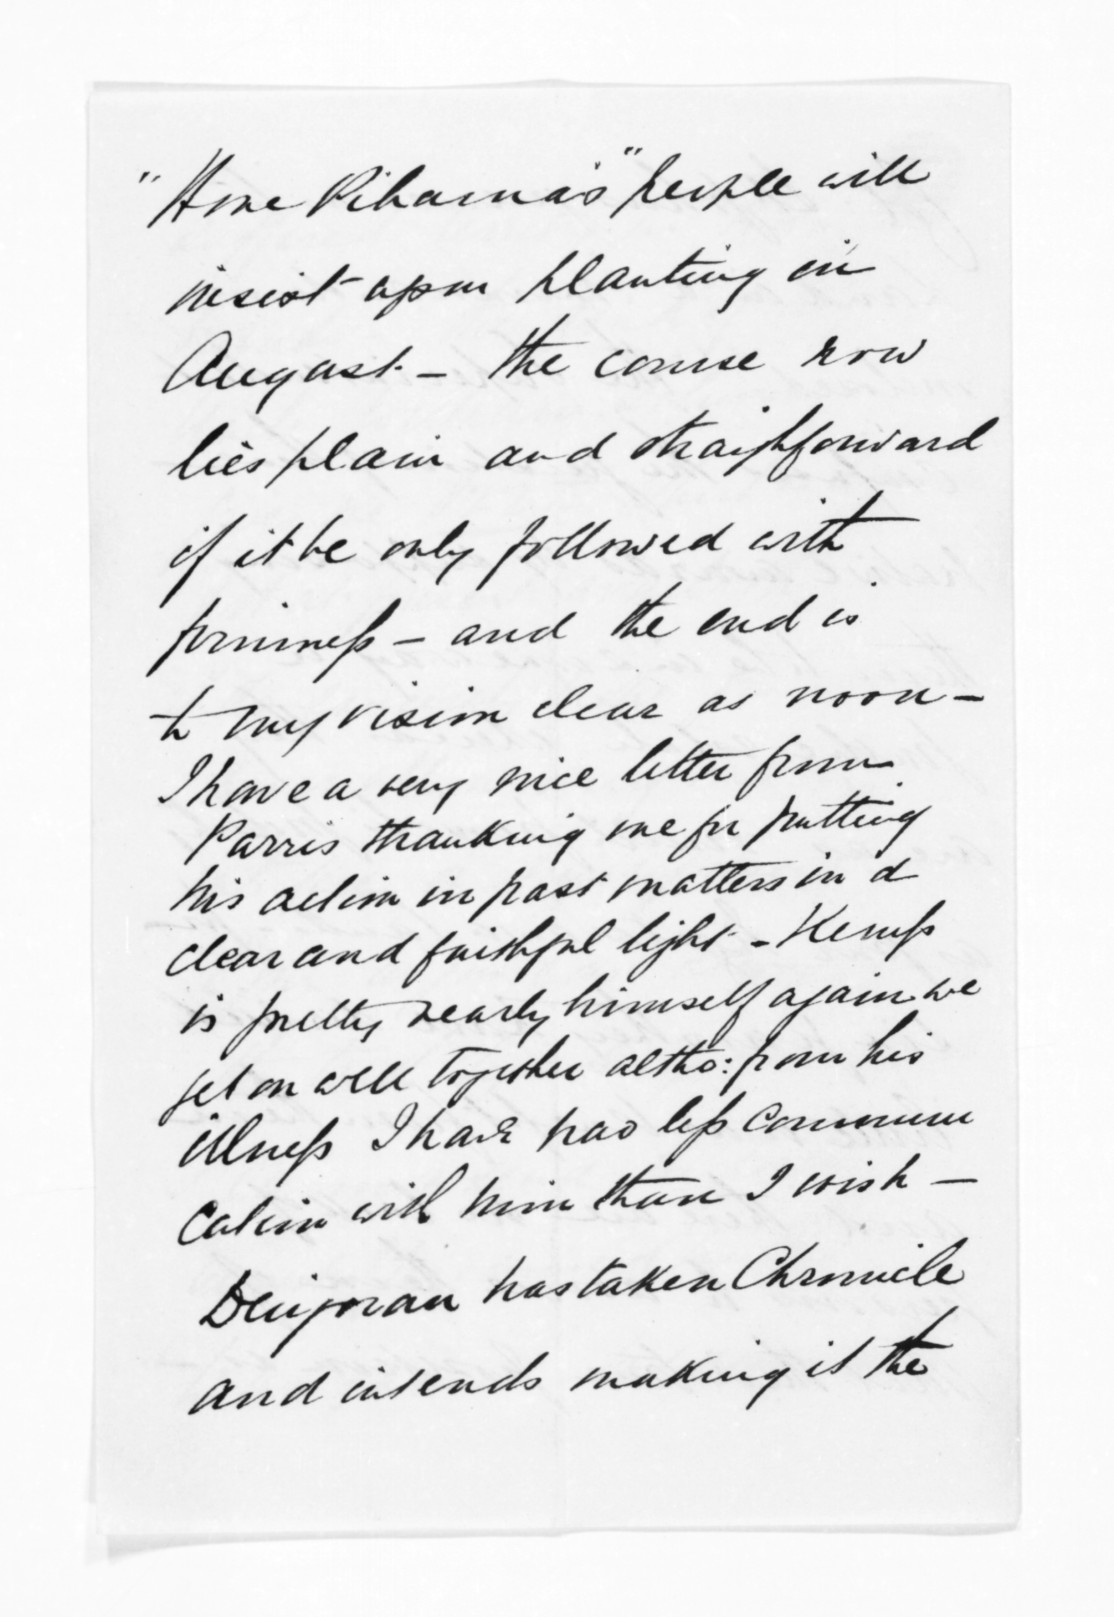 "Hone Pihama's" people will
insist upon planting in
August – the course now
lies plain and straighforward
if it be only followed with
firmness – and the end is
to my vision clear as noon –
I have a very nice letter from
Parris thanking me for putting
his action in past matters in a
clear and faithful light – Kemp
is pretty nearly himself again we
get on well together altho: from his
illness I have had less communi
cation with him than I wish –
has taken Chronicle
and intends making it the